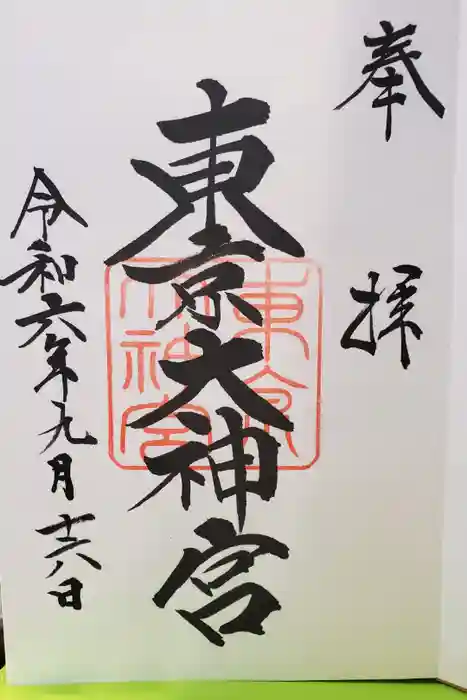 奉拝
東京大神宮
東京大神宮
令和六年九月十八日